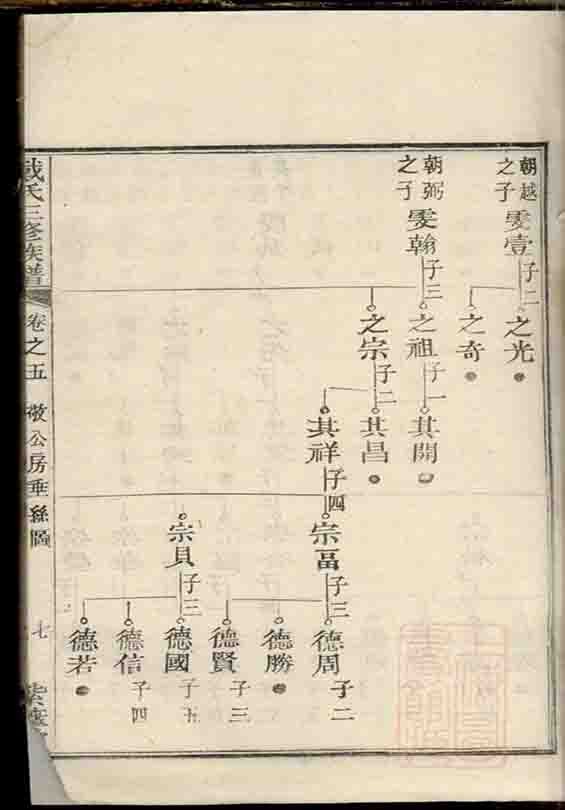 朝越之子
雯壹
子二
之光
之奇
朝弼之子
雯翰
子三
之祖
子一
其開
之宗
子二
其昌
其祥
子四
宗畐
子三
德周
子二
德勝
德賢
子三
宗貝
子三
德國
德信
子四
德若
戴氏三修族譜
卷之五
敬公房垂絲圖
七